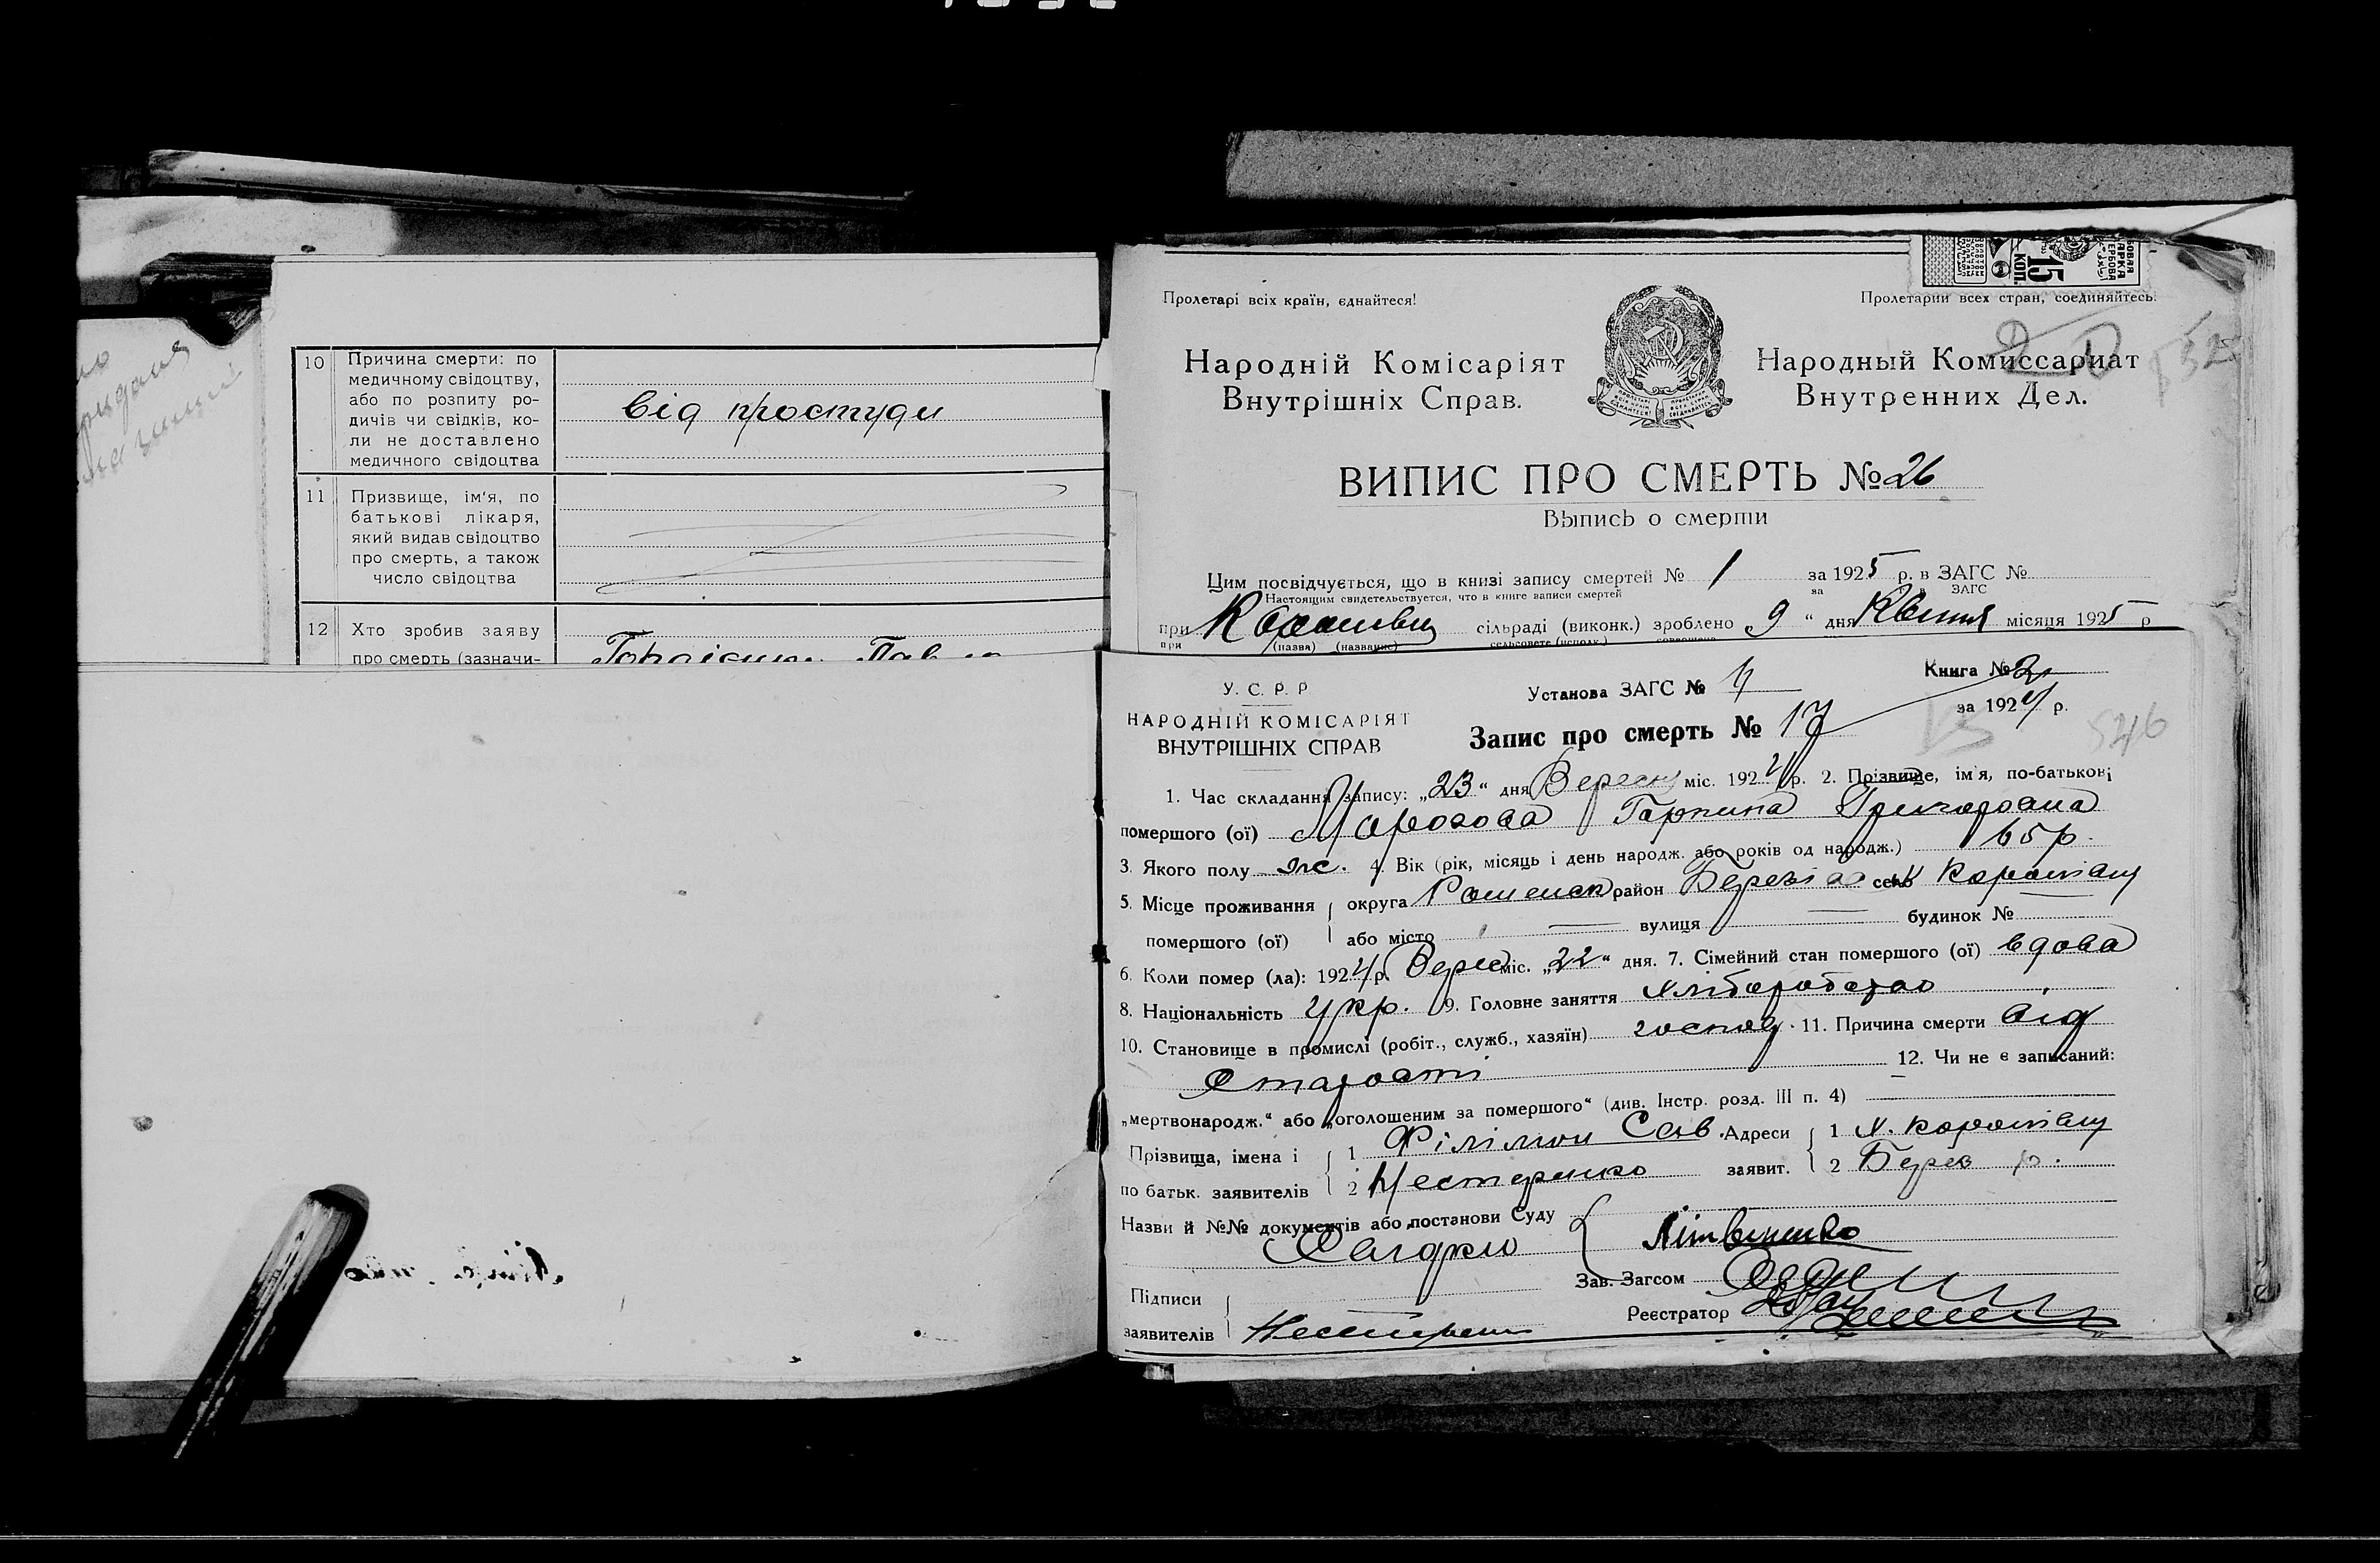 10 Причина смерти: по
медичному свідоцтву,
або по розпиту ро-
дичів чи свідків, ко-
ли не доставлено
медичного свідоцтва
від простуди
11 Призвище, ім'я, по
батькові лікаря,
який видав свідоцтво
про смерть, а також
число свідоцтва
12 Хто зробив заяву
про смерть (зазначи-
Пролетарі всіх країн, єднайтеся!
Пролетарии всех стран, соединяйтесь!
15 КОП.
Народній Комісаріят
Внутрішніх Справ.
Народный Комиссариат
Внутренних Дел.
ВИПИС ПРО СМЕРТЬ № 26
Выпись о смерти
Цим посвідчується, що в книзі запису смертей № 1 за 1925 р. в ЗАГС №
Настоящим свидетельствуется, что в книге записи смертей за в ЗАГС
при сільраді (виконк.) зроблено „9“ дня Квітня місяця 1925 р
при (назва) (название) сельсовете (исполк.) совершена
У. С. Р. Р
НАРОДНІЙ КОМІСАРІЯТ
ВНУТРІШНІХ СПРАВ
Установа ЗАГС № 4
Книга № 2
за 1924 р.
Запис про смерть № 17
546
1. Час складання запису: „23“ дня Вересня міс. 1924 р. 2. Прізвище, ім'я, по-батькові
помершого (ої) Морозова Гарпина Григоровна
3. Якого полу ж. 4. Вік (рік, місяць і день народж. або років од народж.) 65 р.
5. Місце проживання округа Роменск район село
помершого (ої) або місто вулиця будинок №
6. Коли помер (ла): 1924 р. Верес міс. „22“ дня. 7. Сімейний стан помершого (ої) вдова
8. Національність укр. 9. Головне заняття Хліборобство
10. Становище в промислі (робіт., служб., хазяїн) господ. 11. Причина смерти від
Старости 12. Чи не є записаний:
„мертвонародж.“ або „оголошеним за помершого“ (див. Інстр. розд. III п. 4)
Прізвища, імена і 1 Філімон Сав. Адреси 1 х.
по батьк. заявителів 2 Нестеренко заявит. 2 Берез р.
Назви й №№ документів або постанови Суду
Літвиненко
Зав. Загсом
Підписи
Реєстратор
заявителів